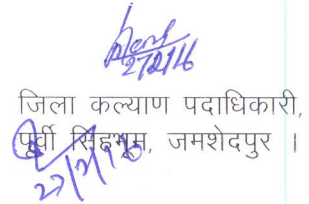 27/2/16
जिला कल्याण पदाधिकारी,
पूर्वी सिंहभूम, जमशेदपुर ।